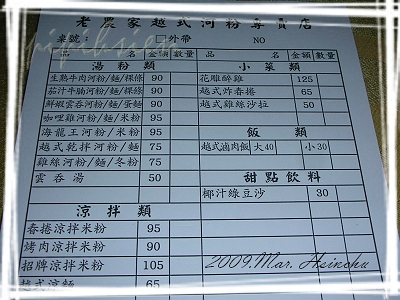 老農家越式河粉專賣店
桌號： □外帶 NO
品 名 金額 數量 品 名 金額 數量
湯粉類 小菜類
生熟牛肉河粉/麵/粿條 90 花雕醉雞 125
茄汁牛腩河粉/麵/粿條 90 越式炸春捲 65
鮮蝦雲吞河粉/麵/蛋麵 90 越式雞絲沙拉 50
咖哩雞河粉/麵/米粉 95
海龍王河粉/麵/米粉 95 飯類
越式乾拌河粉/麵 75 越式滷肉飯 大40 小30
雞絲河粉/麵/冬粉 75 甜點飲料
雲吞湯 50 椰汁綠豆沙 30
涼拌類
春捲涼拌米粉 95
烤肉涼拌米粉 90
招牌涼拌米粉 105
越式涼麵 65
2009.Mar. Hsinchu